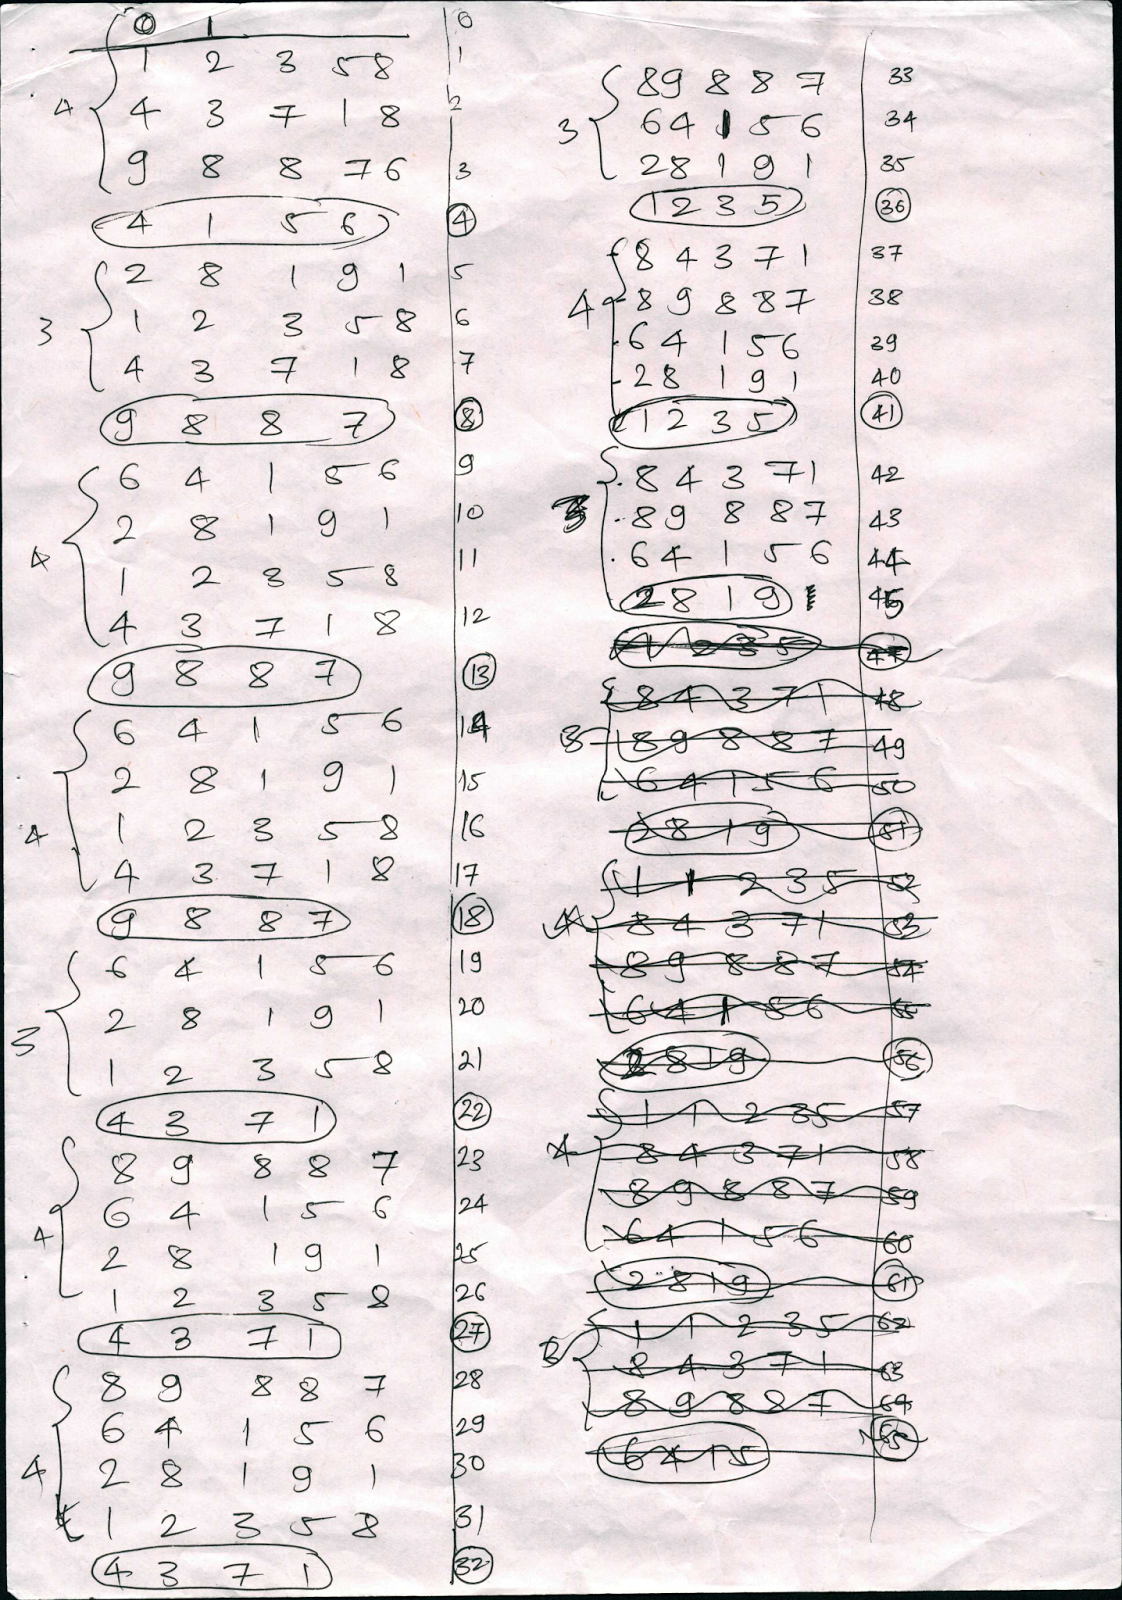 0 1 0
1 2 3 5 8 1
4 { 4 3 7 1 8 2
9 8 8 7 6 3
4 1 5 6 4
2 8 1 9 1 5
3 { 1 2 3 5 8 6
4 3 7 1 8 7
9 8 8 7 8
6 4 1 5 6 9
2 8 1 9 1 10
4 { 1 2 3 5 8 11
4 3 7 1 8 12
9 8 8 7 13
6 4 1 5 6 14
2 8 1 9 1 15
4 { 1 2 3 5 8 16
4 3 7 1 8 17
9 8 8 7 18
6 4 1 5 6 19
3 { 2 8 1 9 1 20
1 2 3 5 8 21
4 3 7 1 22
8 9 8 8 7 23
4 { 6 4 1 5 6 24
2 8 1 9 1 25
1 2 3 5 8 26
4 3 7 1 27
8 9 8 8 7 28
6 4 1 5 6 29
4 { 2 8 1 9 1 30
1 2 3 5 8 31
4 3 7 1 32
8 9 8 8 7 33
3 { 6 4 1 5 6 34
2 8 1 9 1 35
1 2 3 5 36
8 4 3 7 1 37
4 { 8 9 8 8 7 38
6 4 1 5 6 39
2 8 1 9 1 40
1 2 3 5 41
8 4 3 7 1 42
3 { 8 9 8 8 7 43
6 4 1 5 6 44
2 8 1 9 1 45
1 2 3 5 47
8 4 3 7 1 48
3 { 8 9 8 8 7 49
6 4 1 5 6 50
2 8 1 9 51
1 1 2 3 5 52
4 { 8 4 3 7 1 53
8 9 8 8 7 54
6 4 1 5 6 55
2 8 1 9 56
1 1 2 3 5 57
4 { 8 4 3 7 1 58
8 9 8 8 7 59
6 4 1 5 6 60
2 8 1 9 61
1 1 2 3 5 62
3 { 8 4 3 7 1 63
8 9 8 8 7 64
6 4 1 5 65